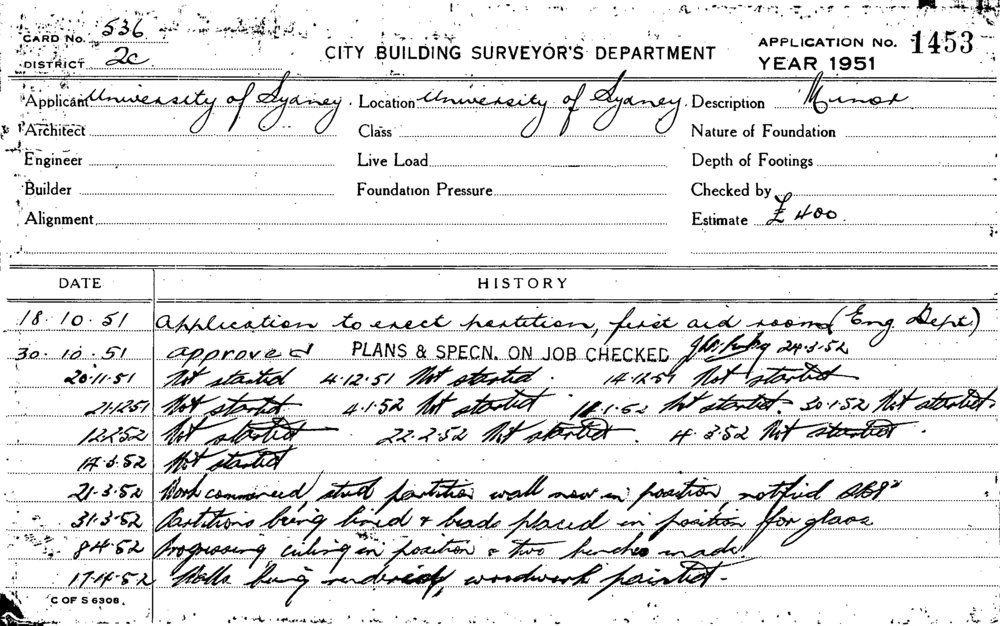 CARD No. 536
DISTRICT 2c
CITY BUILDING SURVEYOR'S DEPARTMENT
APPLICATION No. 1453
YEAR 1951
Applicant University of Sydney. Location University of Sydney. Description Minor
Architect Class Nature of Foundation
Engineer Live Load Depth of Footings
Builder Foundation Pressure Checked by
Alignment Estimate £400.
DATE HISTORY
18.10.51 Application to erect partition, first aid room (Eng Dept.)
30.10.51 approved PLANS & SPECN. ON JOB CHECKED 24.3.52
20.11.51 Not started 4.12.51 Not started. 14.12.51 Not started
21.12.51 Not started 4.1.52 Not started 1.52 Not started. 30.1.52 Not started.
12.2.52 Not started 22.2.52 Not started. 4.3.52 Not started.
14.3.52 Not started
21.3.52 Work commenced, stud partition wall now in position, notified
31.3.52 Partitions being lined & beads placed in position for glass
8.4.52 Progressing ceiling in position & two benches made.
17.4.52 Walls being rendered, woodwork painted.
C OF S 6306.